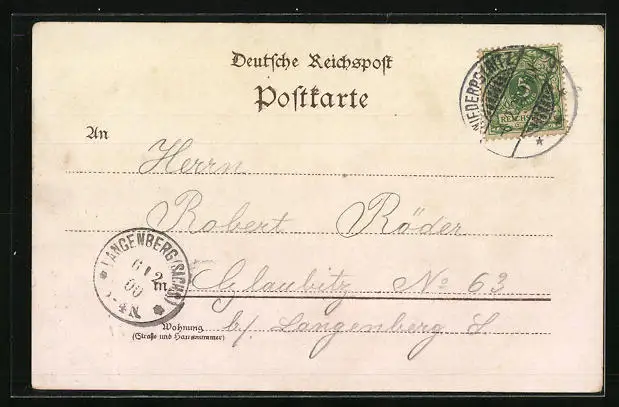 Deutsche Reichspost
Postkarte
5
REICHSPOST
An
Herrn
Robert Röder
LANGENBERG (SACHS)
6 12
00
-4N
in Glaubitz No 63
Wohnung
(Straße und Hausnummer)
b/ Langenberg S.